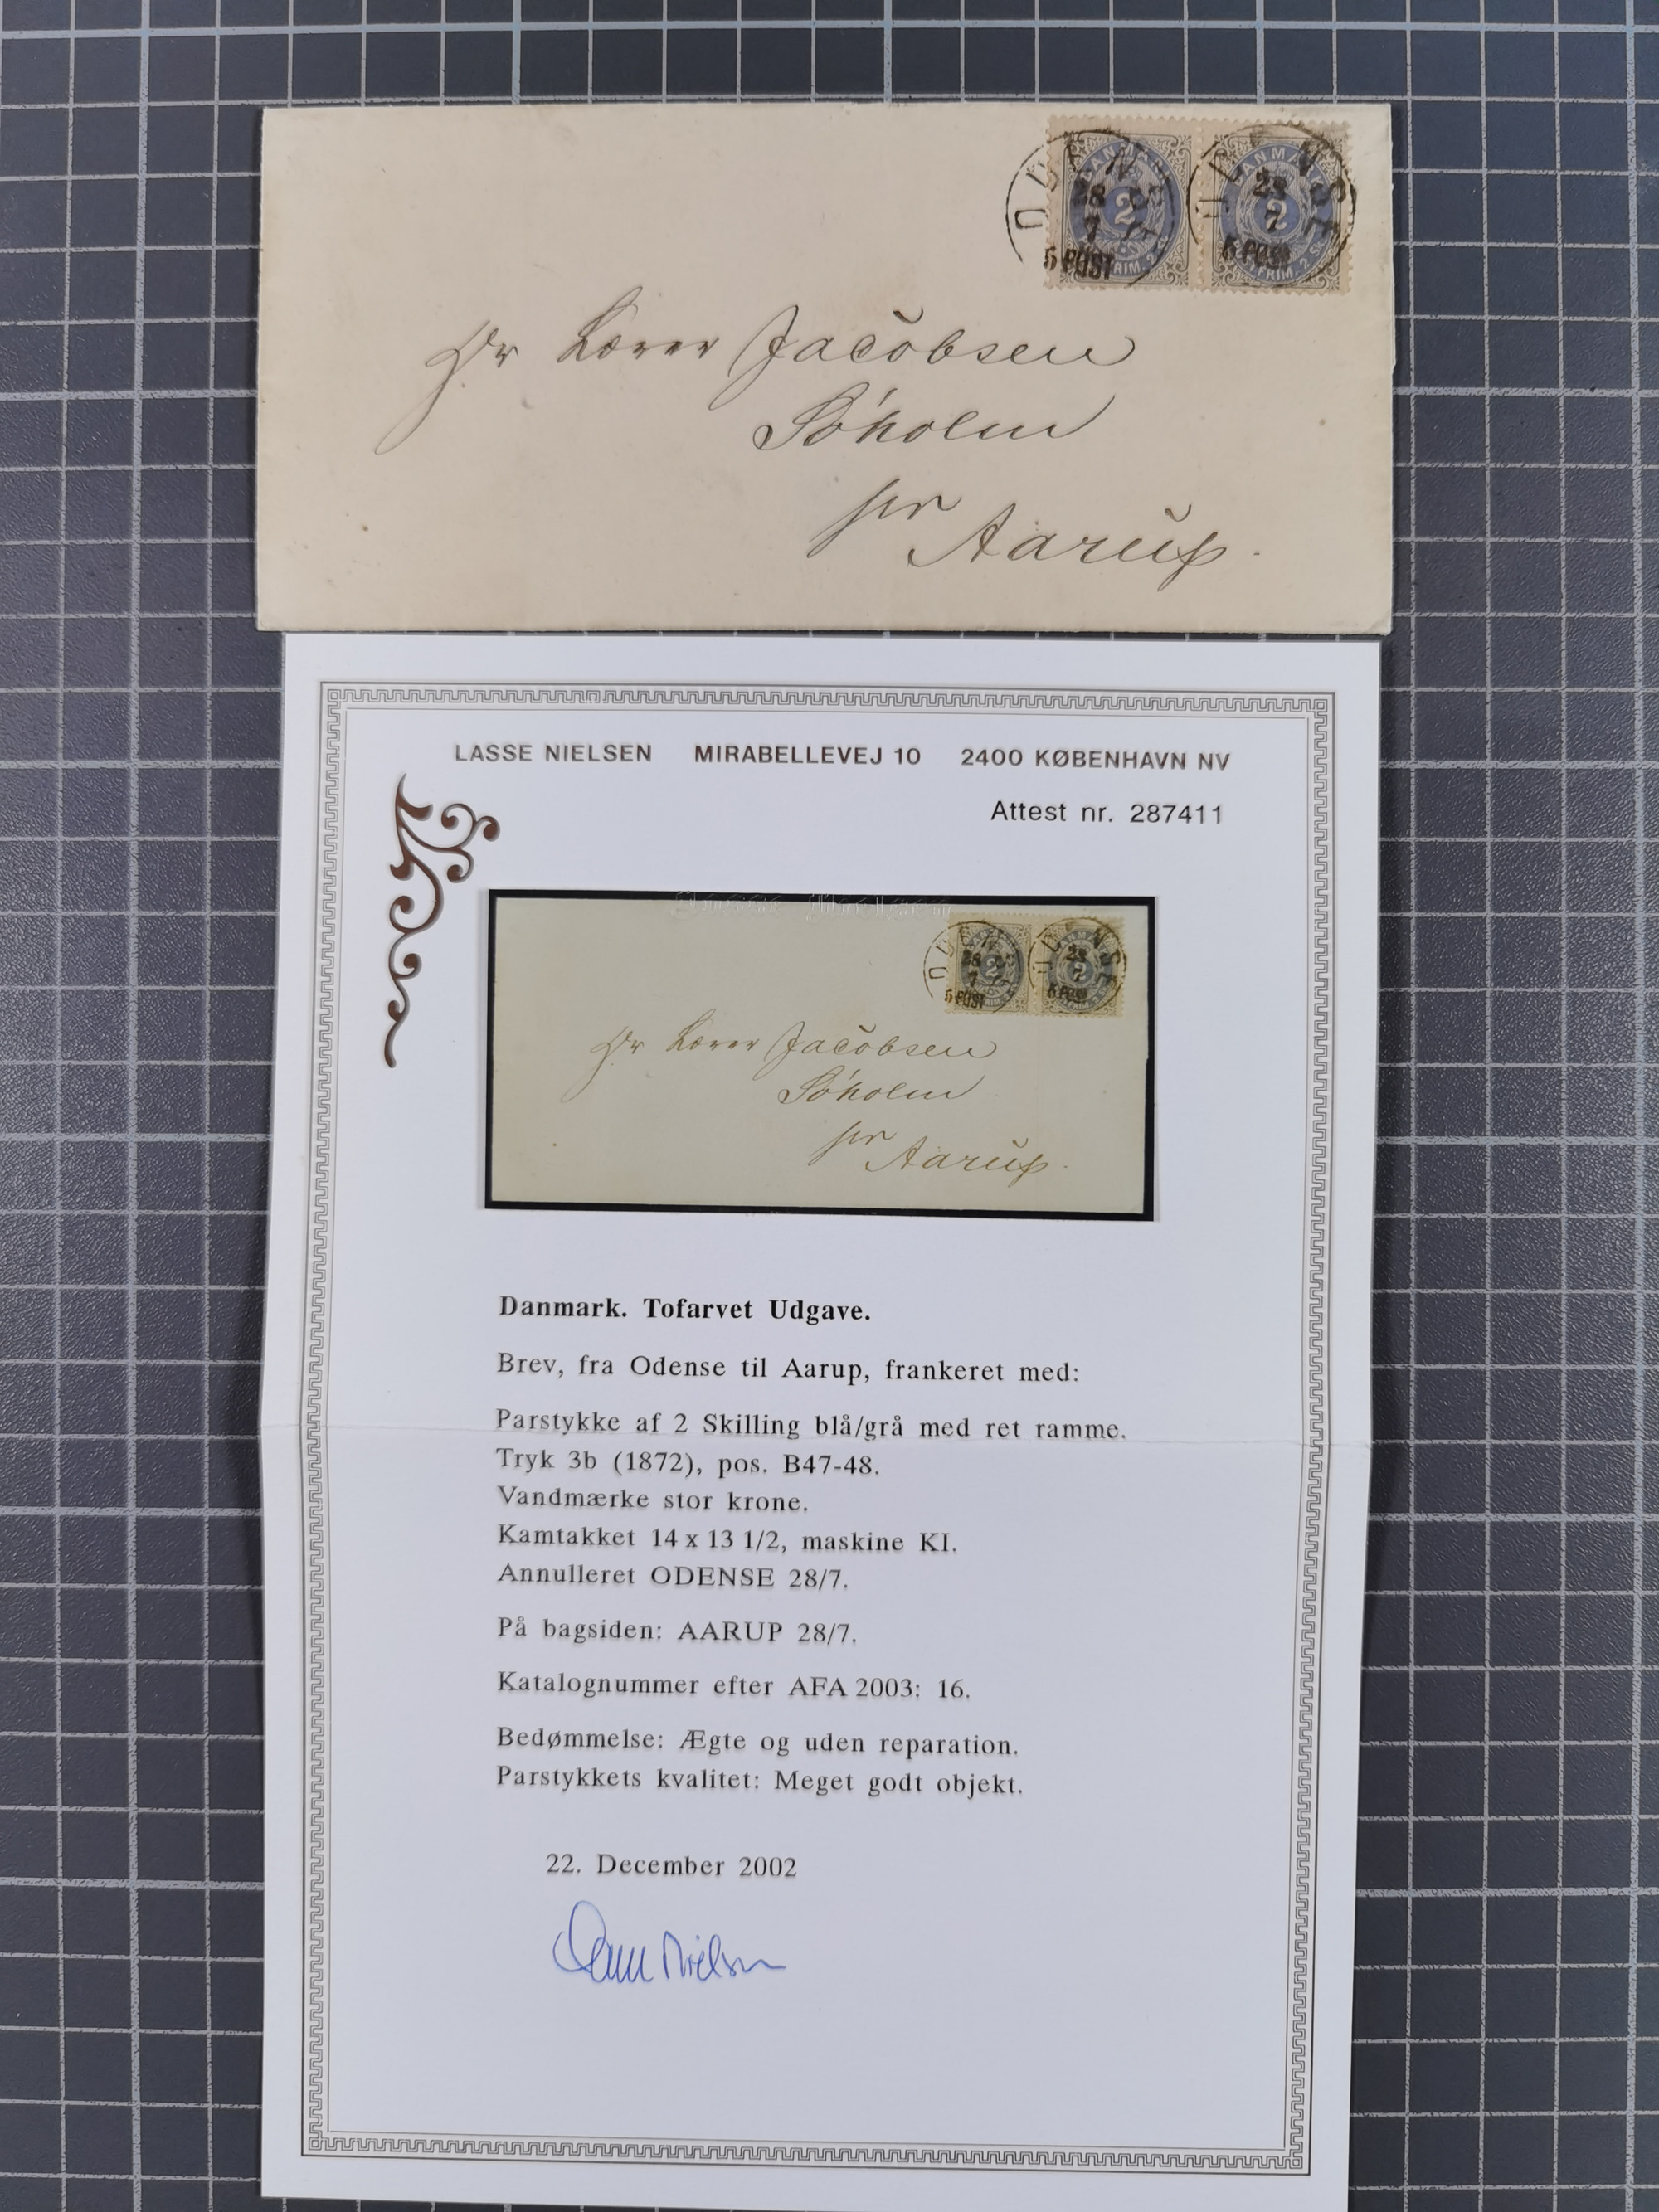 ODENSE
28
7
5 POST
DANMARK
2
FRIM. 2 SK.
ODENSE
28
7
5 POST
DANMARK
2
FRIM. 2 SK.
Hr Lærer Jacobsen
Søholm
pr
Aarup.
LASSE NIELSEN MIRABELLEVEJ 10 2400 KØBENHAVN NV
Attest nr. 287411
Lasse Nielsen
ODENSE
28
7
5 POST
2
ODENSE
28
7
5 POST
2
Hr Lærer Jacobsen
Søholm
pr
Aarup.
Danmark. Tofarvet Udgave.
Brev, fra Odense til Aarup, frankeret med:
Parstykke af 2 Skilling blå/grå med ret ramme.
Tryk 3b (1872), pos. B47-48.
Vandmærke stor krone.
Kamtakket 14 x 13 1/2, maskine KI.
Annulleret ODENSE 28/7.
På bagsiden: AARUP 28/7.
Katalognummer efter AFA 2003: 16.
Bedømmelse: Ægte og uden reparation.
Parstykkets kvalitet: Meget godt objekt.
22. December 2002
Lasse Nielsen